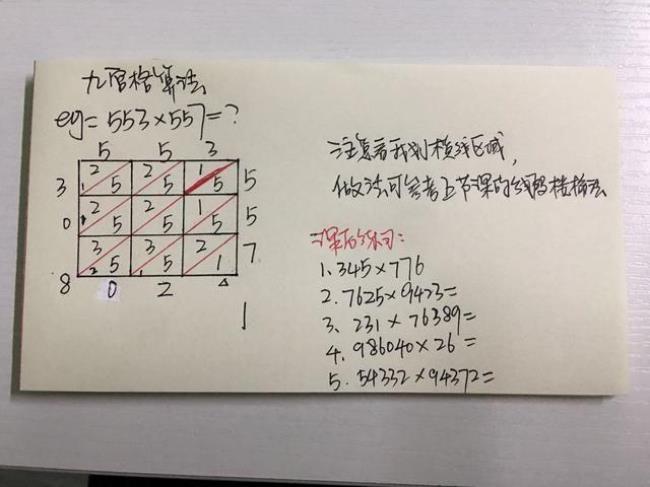 九宫格算法
eg=553×557=?
5 5 3
2 2 1
3 1 5 5 5 5
2 2 1
0 1 5 5 5 5
3 3 2
2 5 1 5 1 7
8 0 2
1
注意看我划横线区域，
做法可参考上节课的
课后练习：
1.345×776
2.7625×9423=
3、231×76389=
4.986040×26=
5.54332×94372=